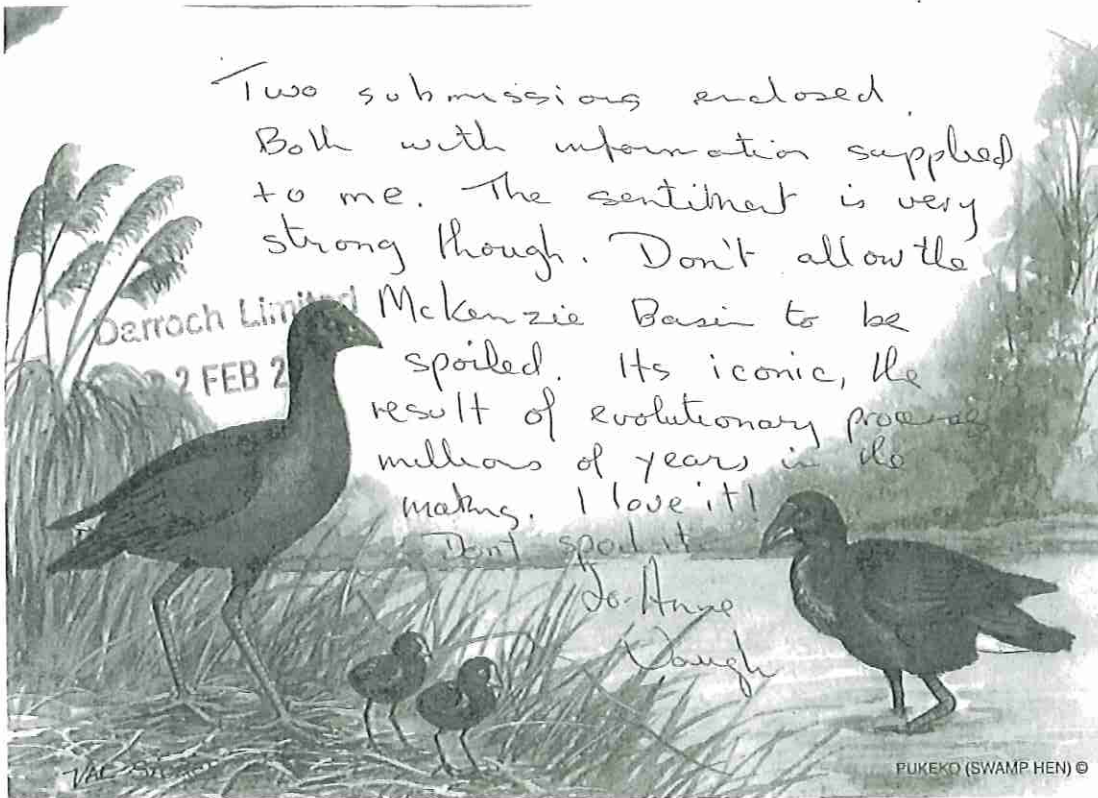 Two submissions enclosed.
Both with information supplied
to me. The sentiment is very
strong though. Don't allow the
McKenzie Basin to be
spoiled. Its iconic, the
result of evolutionary
millions of years in the
making. I love it!
Dont spoil it.
Jo-Anne
Vaugh
Darroch Limited
2 FEB 2
VAL
PUKEKO (SWAMP HEN) ©